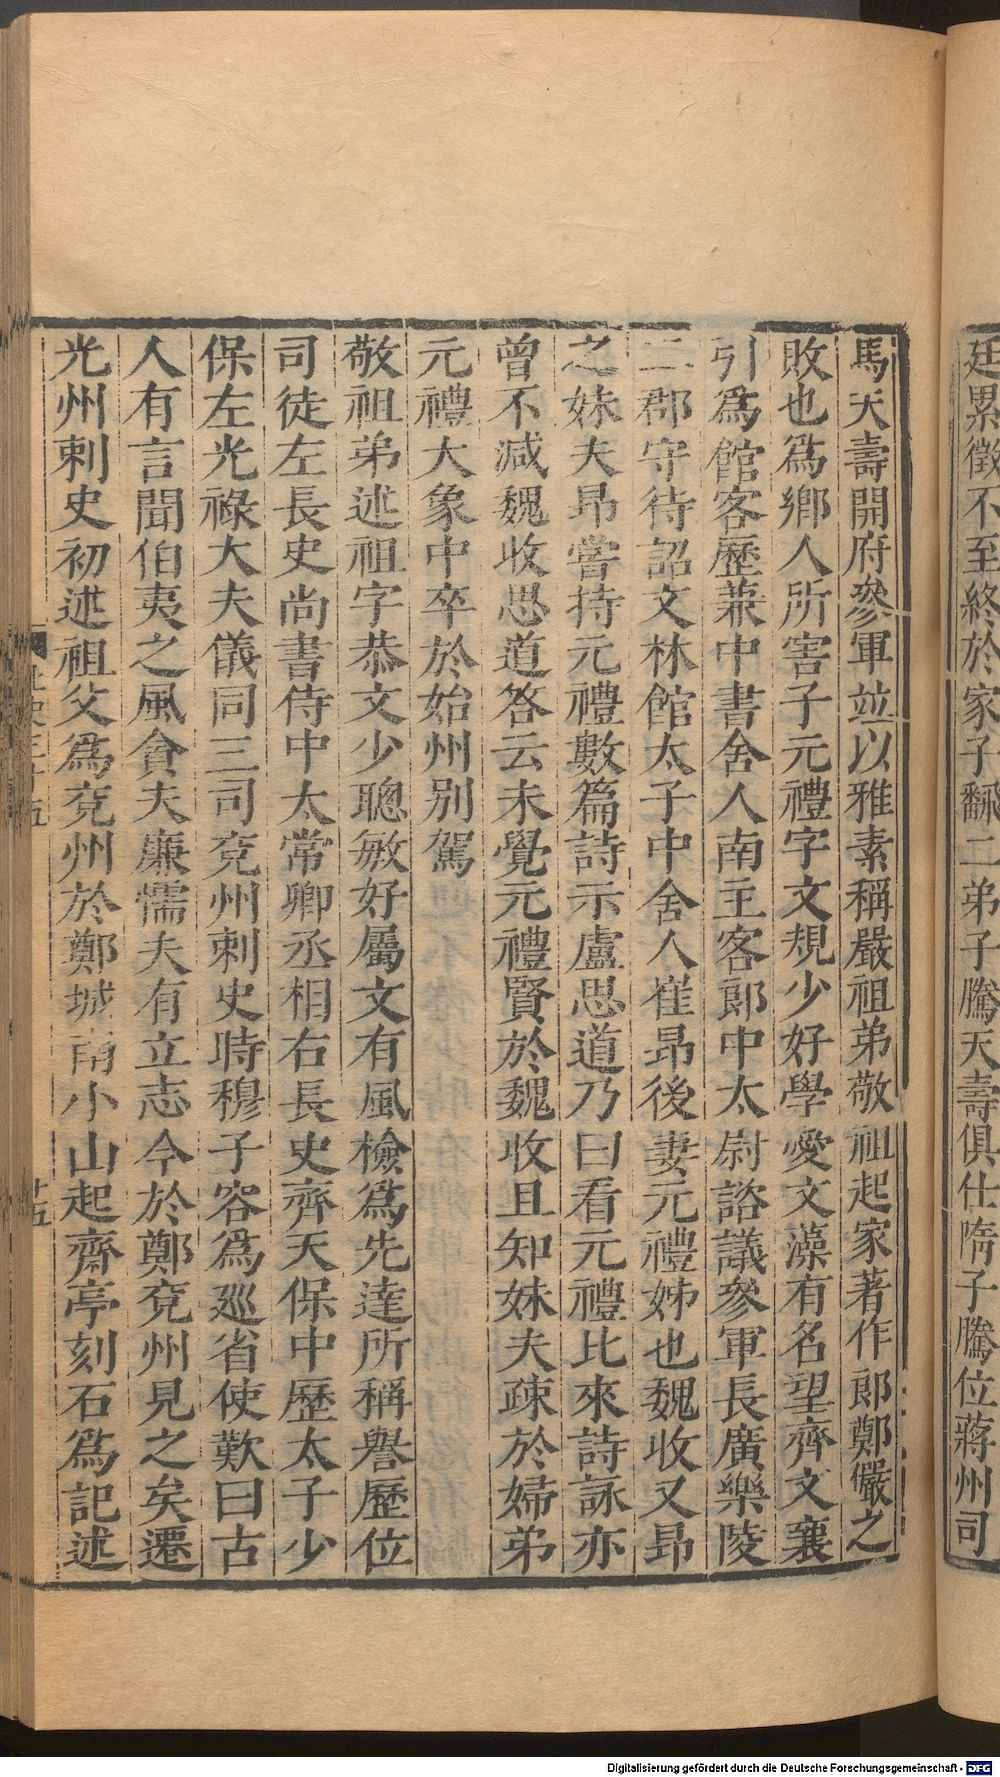 廷累徵不至終於家子翻二弟子騰天壽俱仕隋子騰位蔣州司
馬天壽開府參軍並以雅素稱嚴祖弟敬祖起家著作郎鄭儼之
敗也爲鄉人所害子元禮字文規少好學愛文藻有名望齊文襄
引爲館客歷兼中書舍人南主客郎中太尉諮議參軍長廣樂陵
二郡守待詔文林館太子中舍人崔昂後妻元禮姊也魏收又昂
之妹夫昂嘗持元禮數篇詩示盧思道乃曰看元禮比來詩詠亦
曾不減魏收思道答云未覺元禮賢於魏收且知妹夫疎於婦弟
元禮大象中卒於始州別駕
敬祖弟述祖字恭文少聰敏好屬文有風檢爲先達所稱譽歷位
司徒左長史尚書侍中太常卿丞相右長史齊天保中歷太子少
保左光祿大夫儀同三司兗州刺史時穆子容爲巡省使歎曰古
人有言聞伯夷之風貪夫廉懦夫有立志今於鄭兗州見之矣遷
光州刺史初述祖父爲兗州於鄭城南小山起齋亭刻石爲記述
北史三十五
十五
Digitalisierung gefördert durch die Deutsche Forschungsgemeinschaft - DFG